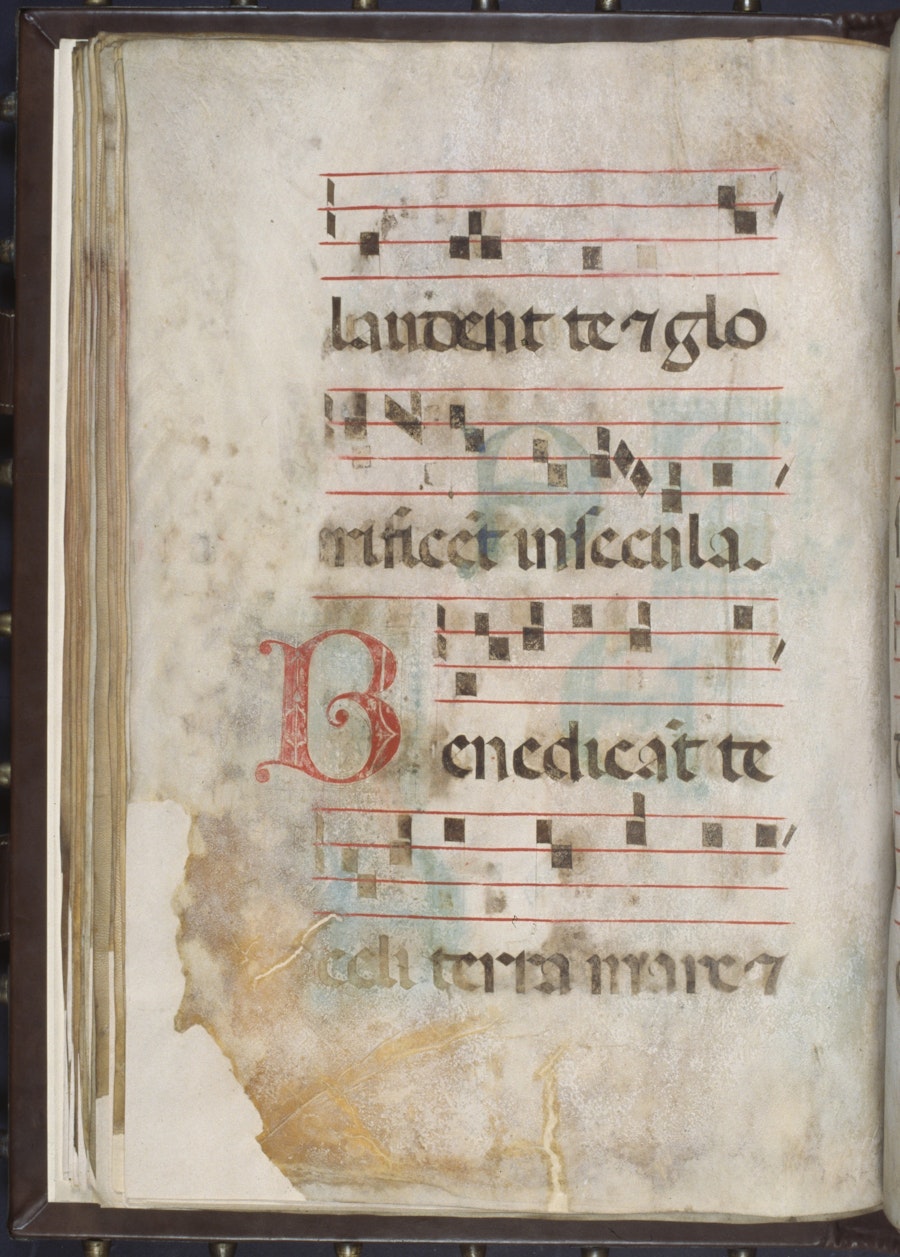 laudent te ⁊ glo
rificēt in secula.
Benedicāt te
celi terra mare ⁊